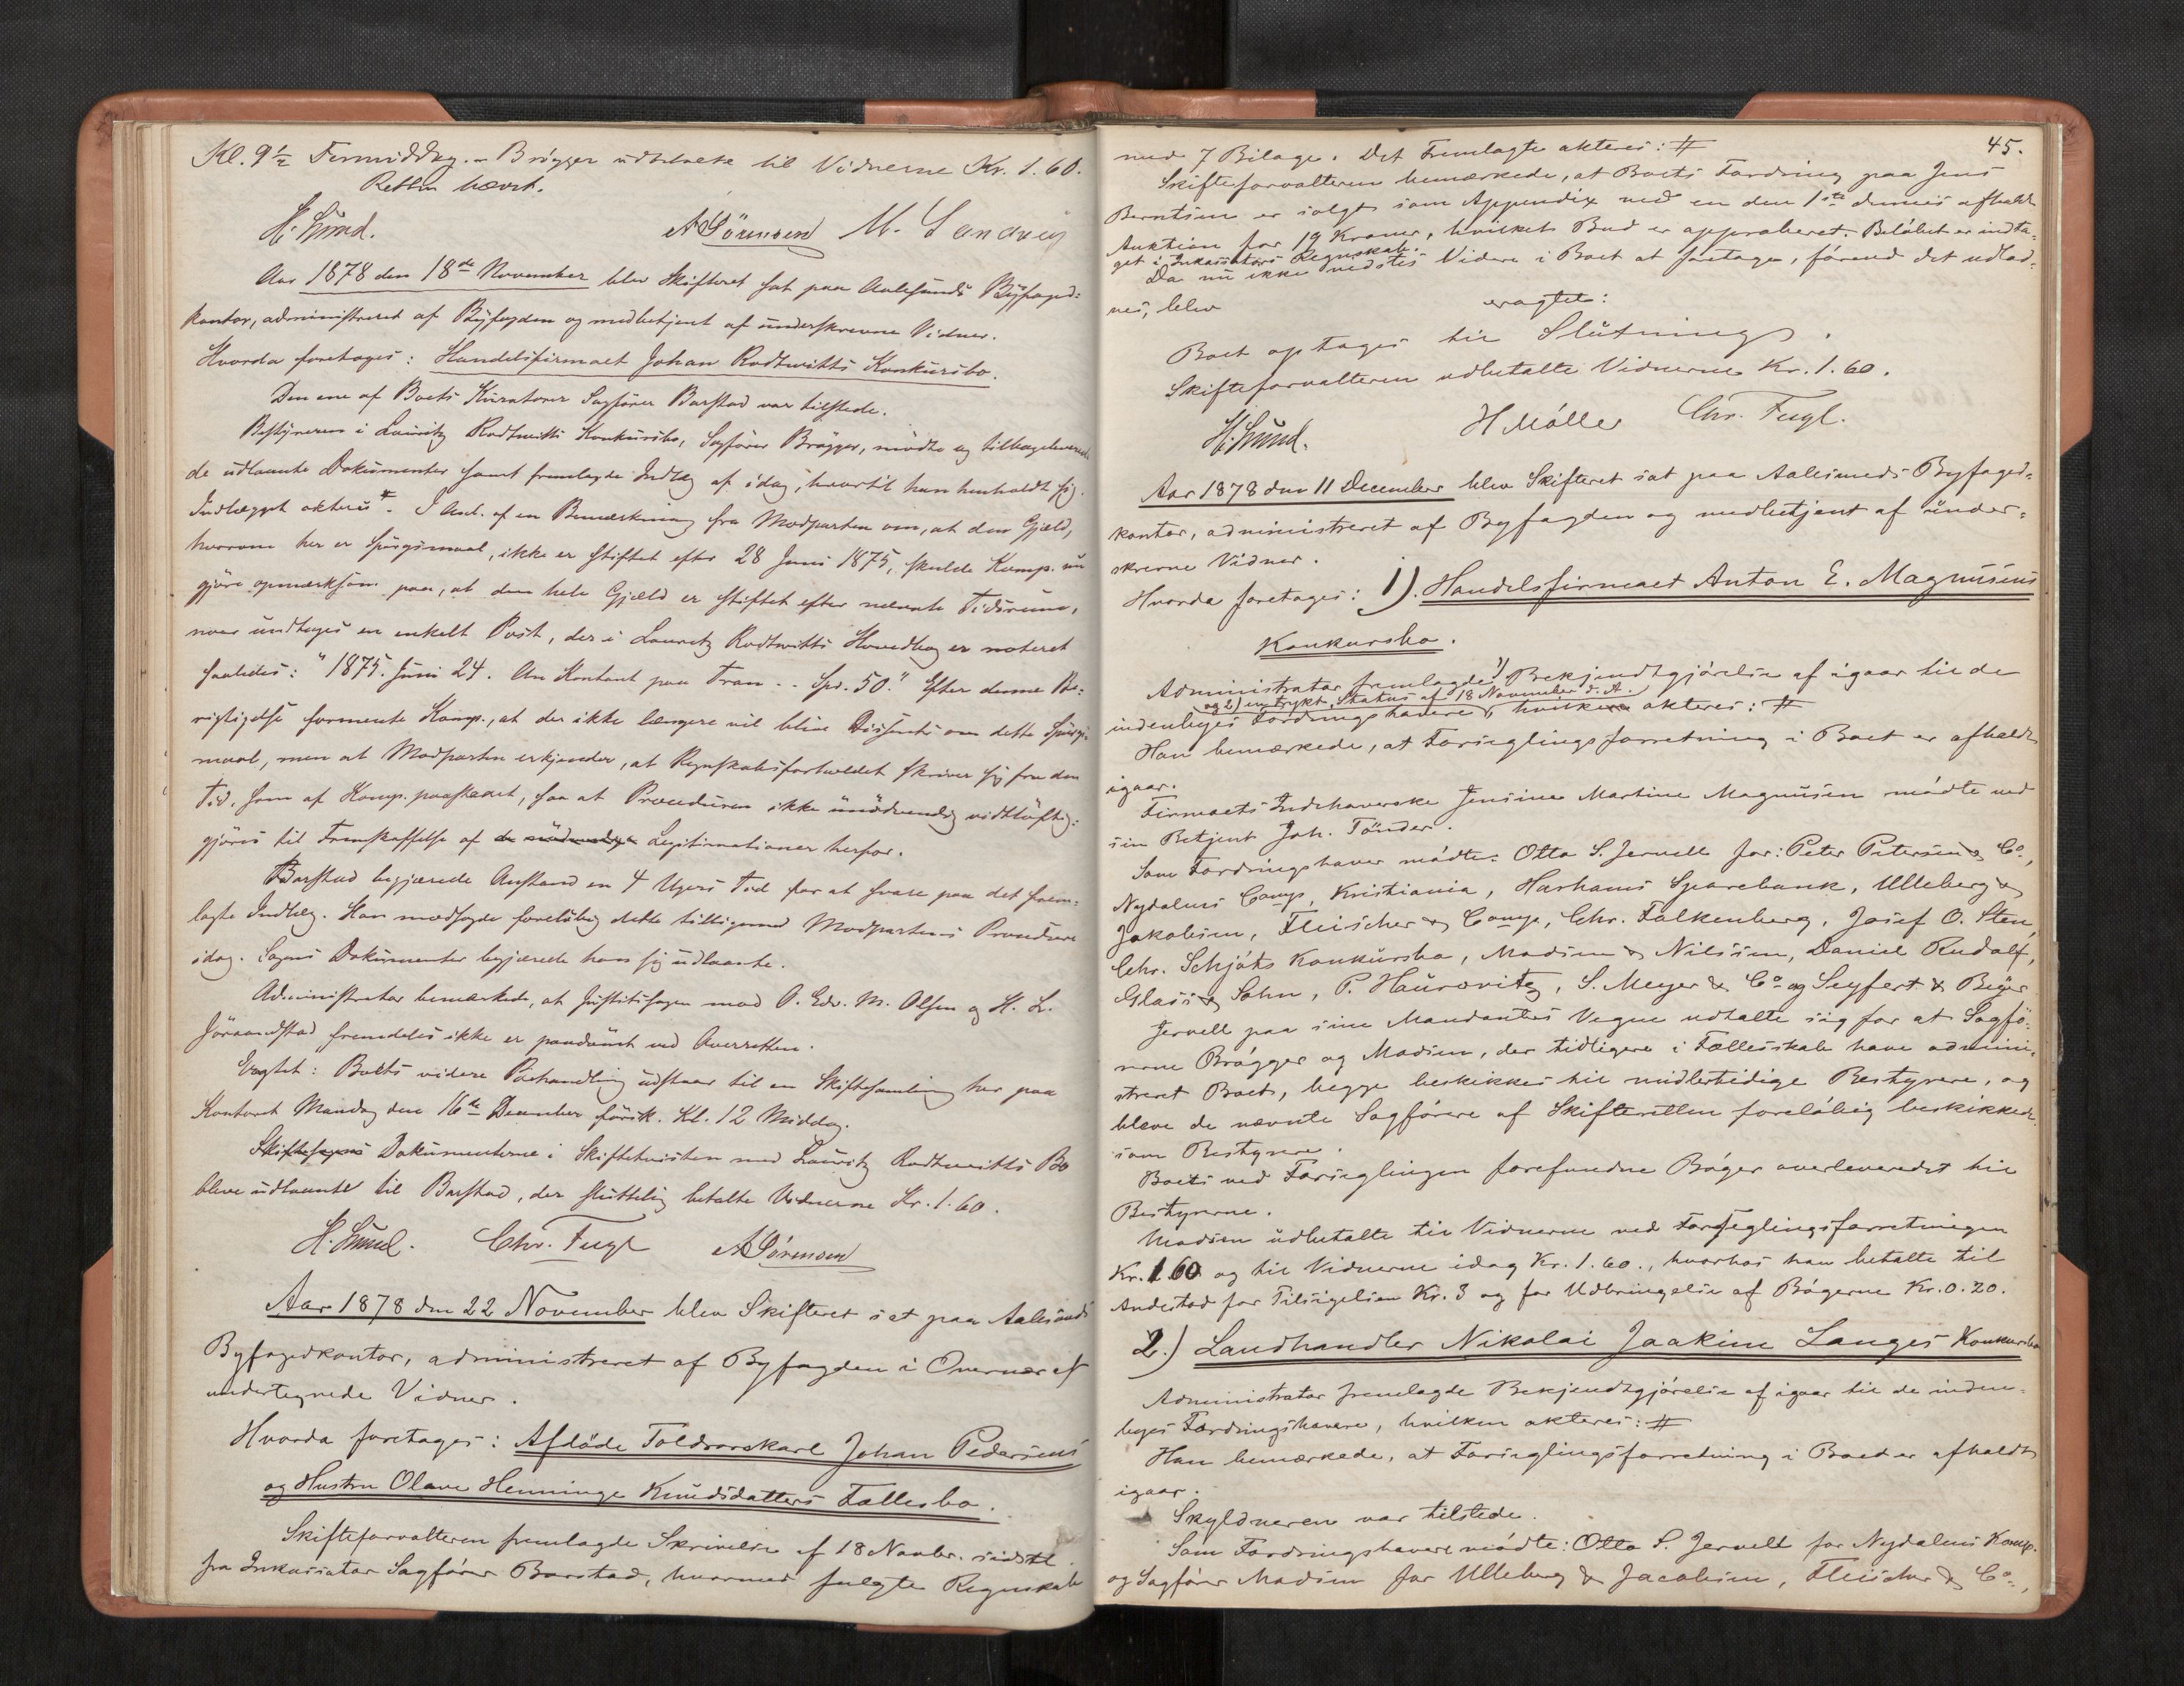 Kl. 9½ Formiddag. – Brøgger udbetalte til Vidnerne Kr. 1.60.
Retten hævet.
H. Lund. A Sörensen M. Sandvig
Aar 1878 den 18de November blev Skifteret sat paa Aalesunds Byfoged-
kontor, administreret af Byfogden og medbetjent af underskrevne Vidner.
Hvorda foretoges: Handelsfirmaet Johan Rodtwitts Konkursbo.
Den ene af Boets Kuratorer Sagfører Barstad var tilstede.
Bestyreren i Lauritz Rodtwitts Konkursbo, Sagfører Brøgger, mødte og tilbageleverede
de udlaante Dokumenter samt fremlagde Indlæg af idag, hvortil han henholdt sig.
Indlægget akteres #. I Anl. af en Bemærkning fra Modparten om, at den Gjæld,
hvorom her er Spørgsmaal, ikke er stiftet efter 28 Juni 1875, skulde Komp. nu
gjøre opmærksom paa, at den hele Gjæld er stiftet efter nævnte Tidsrum,
naar undtages en enkelt Post, der i Lauritz Rodtwitts Hovedbog er noteret
saaledes: "1875. Juni 24. An Kontant paa Tran .. Spd. 50." Efter denne Be-
rigtigelse formente Komp., at der ikke længere vil blive Dissents om dette Spørgs-
maal, men at Modparten erkjender, at Regnskabsforholdet skriver sig fra den
Tid, som af Komp. paastaaet, saa at Proceduren ikke unødvendig vidtløftig-
gjøres til Fremskaffelse af de nödvendige Legitimationer herfor.
Barstad begjærede Anstand en 4 Ugers Tid for at svare paa det frem-
lagte Indlæg. Han modsagde foreløbig dette tilligemed Modpartens Procedure
idag. Sagens Dokumenter begjærede han sig udlaante.
Administrator bemærkede, at Justitssagen mod O. Edv. M. Olsen og H. L.
Jöraandstad fremdeles ikke er paadømt ved Overretten.
Eragtet: Boets videre Behandling udstaar til en Skiftesamling her paa
Kontoret Mandag den 16de December førstk. Kl. 12 Middag.
Skiftesagens Dokumenterne i Skiftetvisten med Lauritz Rodtwitts Bo
bleve udlaante til Barstad, der sluttelig betalte Vidnerne Kr. 1.60.
H. Lund. Chr. Fugl A Sörensen
Aar 1878 den 22 November blev Skifteret sat paa Aalesunds
Byfogedkontor, administreret af Byfogden i Overvær af
undertegnede Vidner.
Hvorda foretoges: Afdöde Toldrorskarl Johan Pedersens
og Hustru Olave Henninge Knudsdatters Fællesbo.
Skifteforvalteren fremlagde Skrivelse af 18 Novbr. sidstl.
fra Inkassator Sagfører Barstad, hvormed fulgte Regnskab
45.
med 7 Bilage. Det Fremlagte akteres: #
Skifteforvalteren bemærkede, at Boets Fordring paa Jens
Berntsen er solgt som Appendix ved en den 1ste dennes afholdt
Auktion for 19 Kroner, hvilket Bud er approberet. Beløbet er indta-
get i Inkassators Regnskab.
Da nu ikke vidstes Videre i Boet at foretage, førend det udlod-
nes, blev
eragtet:
Boet optages til Slutning.
Skifteforvalteren udbetalte Vidnerne Kr. 1.60.
H. Lund. H Möller Chr. Fugl.
Aar 1878 den 11 December blev Skifteret sat paa Aalesunds Byfoged-
kontor, administreret af Byfogden og medbetjent af under-
skrevne Vidner.
Hvorda foretoges: 1). Handelsfirmaet Anton E. Magnusens
Konkursbo.
Administrator fremlagde 1) Bekjendtgjørelse af igaar til de
og 2) en trykt Status af 18 November d. A.
indenbyes Fordringshavere, hvilke akteres: #
Han bemærkede, at Forseglingsforretning i Boet er afholdt
igaar.
Firmaets Indehaverske Jensine Martine Magnusen mødte ved
sin Betjent Joh. Tönder.
Som Fordringshaver mødte: Otto S. Jervell for: Peter Petersen & Co,
Nydalens Comp, Kristiania, Harhams Sparebank, Ulleberg &
Jakobsen, Fleischer & Comp, Chr. Falkenberg, Josef O. Sten,
Chr. Schjöts Konkursbo, Madsen & Nilssen, Daniel Rudolf,
Glass & Sohn, P. Haurowitz, S. Meyer & Co og Seyfert & Beyer
Jervell paa sine Mandanters Vegne udtalte sig for at Sagfø-
rerne Brøgger og Madsen, der tidligere i Fællesskab have admini-
streret Boet, begge beskikkes til midlertidige Bestyrere, og
bleve de nævnte Sagførere af Skifteretten foreløbig beskikkede
som Bestyrere.
Boets ved Forseglingen forefundne Bøger overleveredes til
Bestyrerne.
Madsen udbetalte til Vidnerne ved Forseglingsforretningen
Kr. 1.60 og til Vidnerne idag Kr. 1.60., hvorhos han betalte til
Andestad for Tilsigelsen Kr. 3 og for Udbringelse af Bøgerne Kr. 0.20.
2.) Landhandler Nikolai Joakim Langes Konkursbo
Administrator fremlagde Bekjendtgjørelse af igaar til de inden-
byes Fordringshavere, hvilken akteres: #
Han bemærkede, at Forseglingsforretning i Boet er afholdt
igaar.
Skyldneren var tilstede.
Som Fordringshavere mødte: Otto S. Jervell for Nydalens Komp.
og Sagfører Madsen for Ulleberg & Jacobsen, Fleischer & Co,